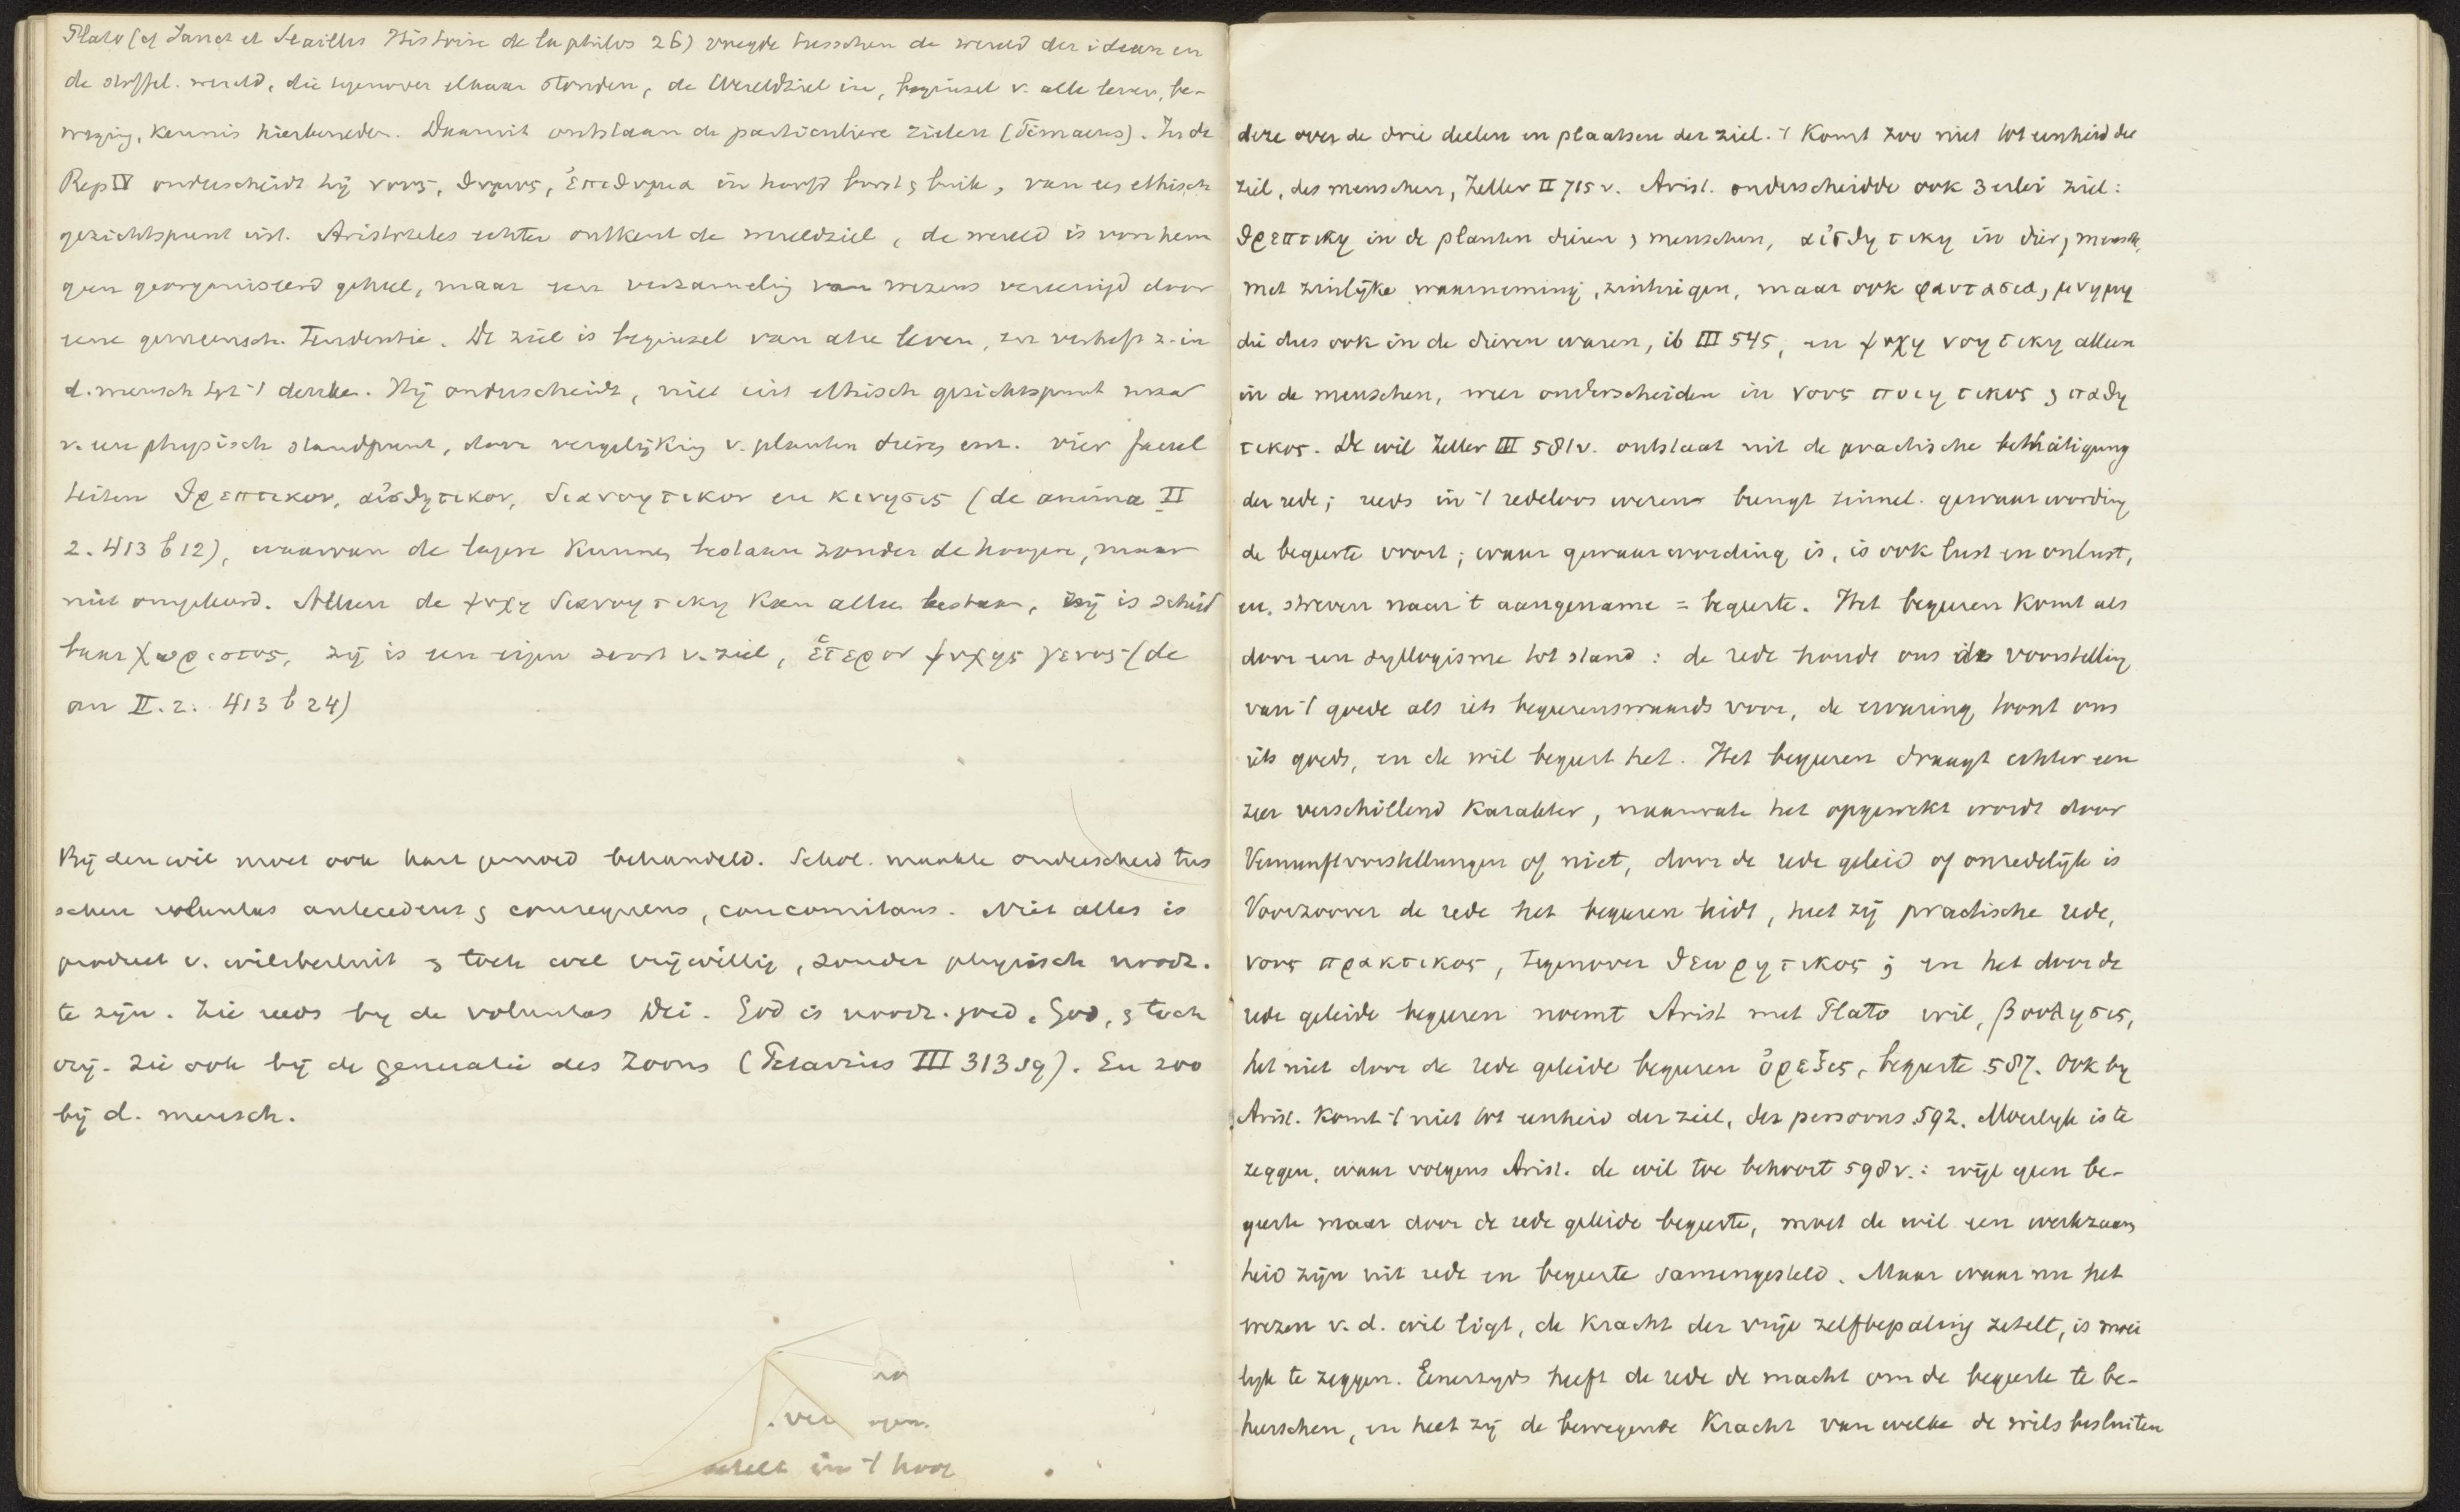 Plato (cf Janet et Seailles Histoire de la philos 26) voegde tusschen de wereld der ideen en
de stoffel. wereld, die tegenover elkaar stonden, de Wereldziel in, beginsel v. alle leven, be-
weging, kennis hierbeneden. Daaruit ontstaan de particuliere zielen (Timaeus). In de
Rep IV onderscheidt hij νους, θυμος, ἐπιθυμια in hoofd borst & buik, van uit ethisch
gezichtspunt uit. Aristoteles echter ontkent de wereldziel, de wereld is voor hem
geen georganiseerd geheel, maar een verzameling van wezens vereenigd door
eene gemeensch. tendentie. De ziel is beginsel van alle leven, en verheft z. in
d. mensch tot 't denken. Hij onderscheidt, niet uit ethisch gezichtspunt maar
v. een physisch standpunt, door vergelijking v. planten dieren enz. vier facul
teiten θρεπτικον, αἰσθητικον, διανοητικον en κινησις (de anima II
2. 413 b 12), waarvan de lagere kunnen bestaan zonder de hoogere, maar
niet omgekeerd. Alleen de ψυχη διανοητικη kan alleen bestaan, zij is scheid
baar χωριστος, zij is een eigen soort v. ziel, ἑτερον ψυχης γενος (de
an II. 2. 413 b 24)
Bij den wil moet ook hart gemoed behandeld. Schol. maakte onderscheid tus
schen voluntas antecedens & consequens, concomitans. Niet alles is
product v. wilsbesluit & toch wel vrijwillig, zonder physisch noodz.
te zijn. Zie reeds bij de voluntas Dei. God is noodz. goed, God, & toch
vrij. Zie ook bij de generatie des Zoons (Petavius III 313 sq). En zoo
bij d. mensch.
in 't hoof
deze over de drie deelen en plaatsen der ziel. 't Komt zoo niet tot eenheid der
ziel, des menschen, Zeller II 715 v. Arist. onderscheidde ook 3 erlei ziel:
θρεπτικη in de planten dieren & menschen, αἰσθητικη in dier & mensch,
met zinlijke waarneming, zintuigen, maar ook φαντασια, μνημη
die dus ook in de dieren waren, ib III 545, en ψυχη νοητικη alleen
in de menschen, weer onderscheiden in νους ποιητικος & παθη
τικος. De wil Zeller III 581 v. ontstaat uit de practische bethätigung
der rede; reeds in 't redeloos wezens brengt zinnel. gewaarwording
de begeerte voort; waar gewaarwording is, is ook lust en onlust,
en, streven naar 't aangename = begeerte. Het begeeren komt als
door een syllogisme tot stand: de rede houdt ons de voorstelling
van 't goede als iets begeerenswaards voor, de ervaring toont ons
iets goeds, en de wil begeert het. Het begeeren draagt echter een
zeer verschillend karakter, naarmate het opgewekt wordt door
Vernunftvorstellungen of niet, door de rede geleid of onredelijk is
Voorzoover de rede het begeeren leidt, heet zij practische rede,
νους πρακτικος, tegenover θεωρητικος; en het door de
rede geleide begeeren noemt Arist met Plato wil, βουλησις,
het niet door de rede geleide begeeren ὀρεξις, begeerte 587. Ook bij
Arist. komt 't niet tot eenheid der ziel, der persoons 592. Moeilijk is te
zeggen, waar volgens Arist. de wil toe behoort 598 v.: wijl geen be-
geerte maar door de rede geleide begeerte, moet de wil een werkzaam
heid zijn uit rede en begeerte samengesteld. Maar waar nu het
wezen v. d. wil ligt, de kracht der vrije zelfbepaling zetelt, is moei
lijk te zeggen. Eenerzijds heeft de rede de macht om de begeerte te be-
heerschen, en heet zij de bewegende kracht van welke de wilsbesluiten